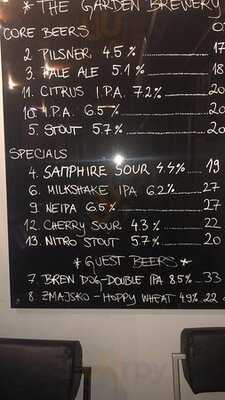 * THE GARDEN BREWERY
CORE BEERS
2. PILSNER 4.5% 17
3. PALE ALE 5.1% 18
11. CITRUS I.P.A. 7.2% 20
10. I.P.A. 6.5% 20
5. STOUT 5.7% 20
SPECIALS
4. SAMPHIRE SOUR 4.4% 19
6. MILKSHAKE IPA 6.2% 27
9. NEIPA 6.5% 27
12. CHERRY SOUR 4.3% 22
13. NITRO STOUT 5.7% 20
* GUEST BEERS *
7. BREW DOG-DOUBLE IPA 8.5% 33
8. ZMAJSKO - HOPPY WHEAT 4.9% 22